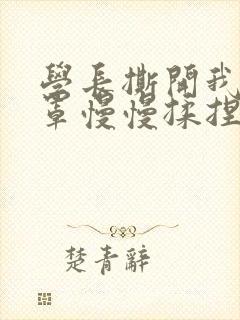 學長撕開我
罩慢慢揉捏
楚青辭